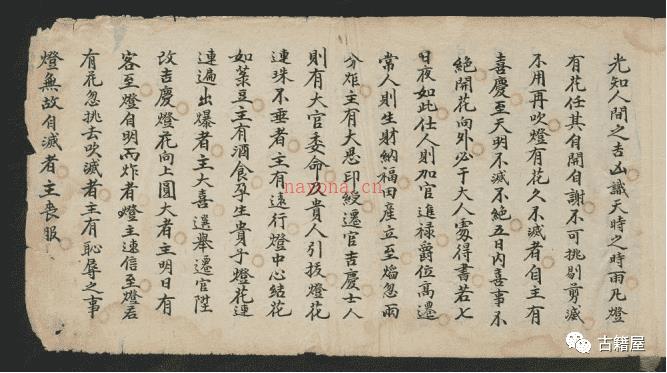 光知人間之吉凶識天時之時雨凡燈
有花任其自開自謝不可挑剔剪滅
不用再吹燈有花久不滅者自主有
喜慶至天明不滅不絕五日內喜事不
絕開花向外必干大人處得書若七
日夜如此仕人則加官進祿爵位高遷
常人則生財納福田產立至焰忽兩
分炸主有大恩印綬遷官吉慶士人
則有大官委命及貴人引拔燈花
連珠不垂者主有遠行燈中心結花
如菉豆主有酒食孕生貴子燈花連
連遍出爆者主大喜選舉遷官陞
改吉慶燈花向上圓大者主明日有
客至燈自明而炸者燈主速信至燈若
有花忽挑去吹滅者主有恥辱之事
燈無故自滅者主喪服
nayona.cn
古籍屋